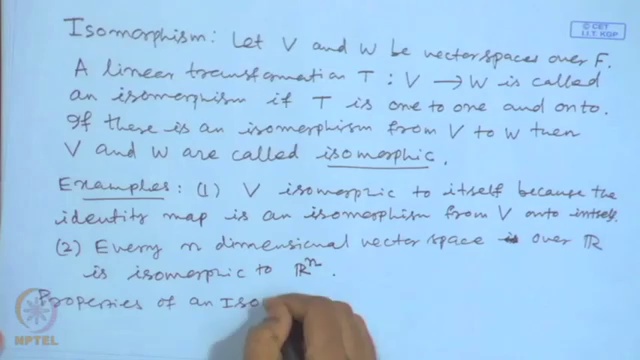 © CET
I.I.T. KGP
Isomorphism: Let V and W be vector spaces over F.
A linear transformation T : V → W is called
an isomorphism if T is one to one and onto.
If there is an isomorphism from V to W then
V and W are called isomorphic.
Examples: (1) V isomorphic to itself because the
identity map is an isomorphism from V onto intself.
(2) Every n dimensional vector space over ℝ
is isomorphic to ℝⁿ.
Properties of an Iso
NPTEL